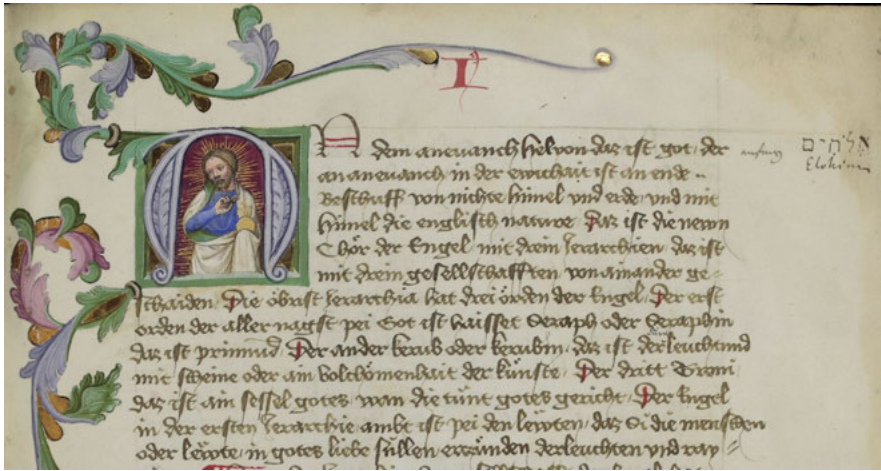 I
An dem anevanch helvon daz ist got, der
an anevanch in der ewichait ist an ende
Beschuff von nichte himel vnd erde, vnd mit
himel die englisch nature. Daz ist die newn
Chör der Engel, mit drein Jerarchien, daz ist
mit drein gesellschafften, von ainander ge-
schaiden. Die öbrist Jerarchia hat drei örden der Engel. Der erst
orden der aller nagst pei Got ist haisset Seraph oder Seraphin
daz ist prinnund. Der ander kerub oder kerubin. daz ist derleuchtund
mit scheine oder ain volchömenhait der künste. Der dritt Troni
daz ist ain sessel gotes, wan die tünt gotes gericht. Der Engel
in der ersten Jerarchie ambt ist pei den lewten, daz Si die menschen
oder lewte, in gotes liebe füllen, erzünden derleuchten vnd ray=
anfang
אלהים
Elohim